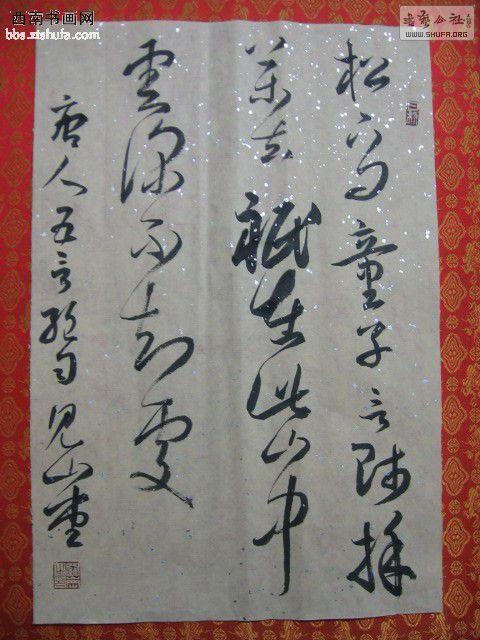 西南书画网
bbs.ztshufa.com
書法公社
WWW.SHUFA.ORG
松下問童子言師採
藥去祇在此山中
雲深不知處
唐人五言絶句見山堂